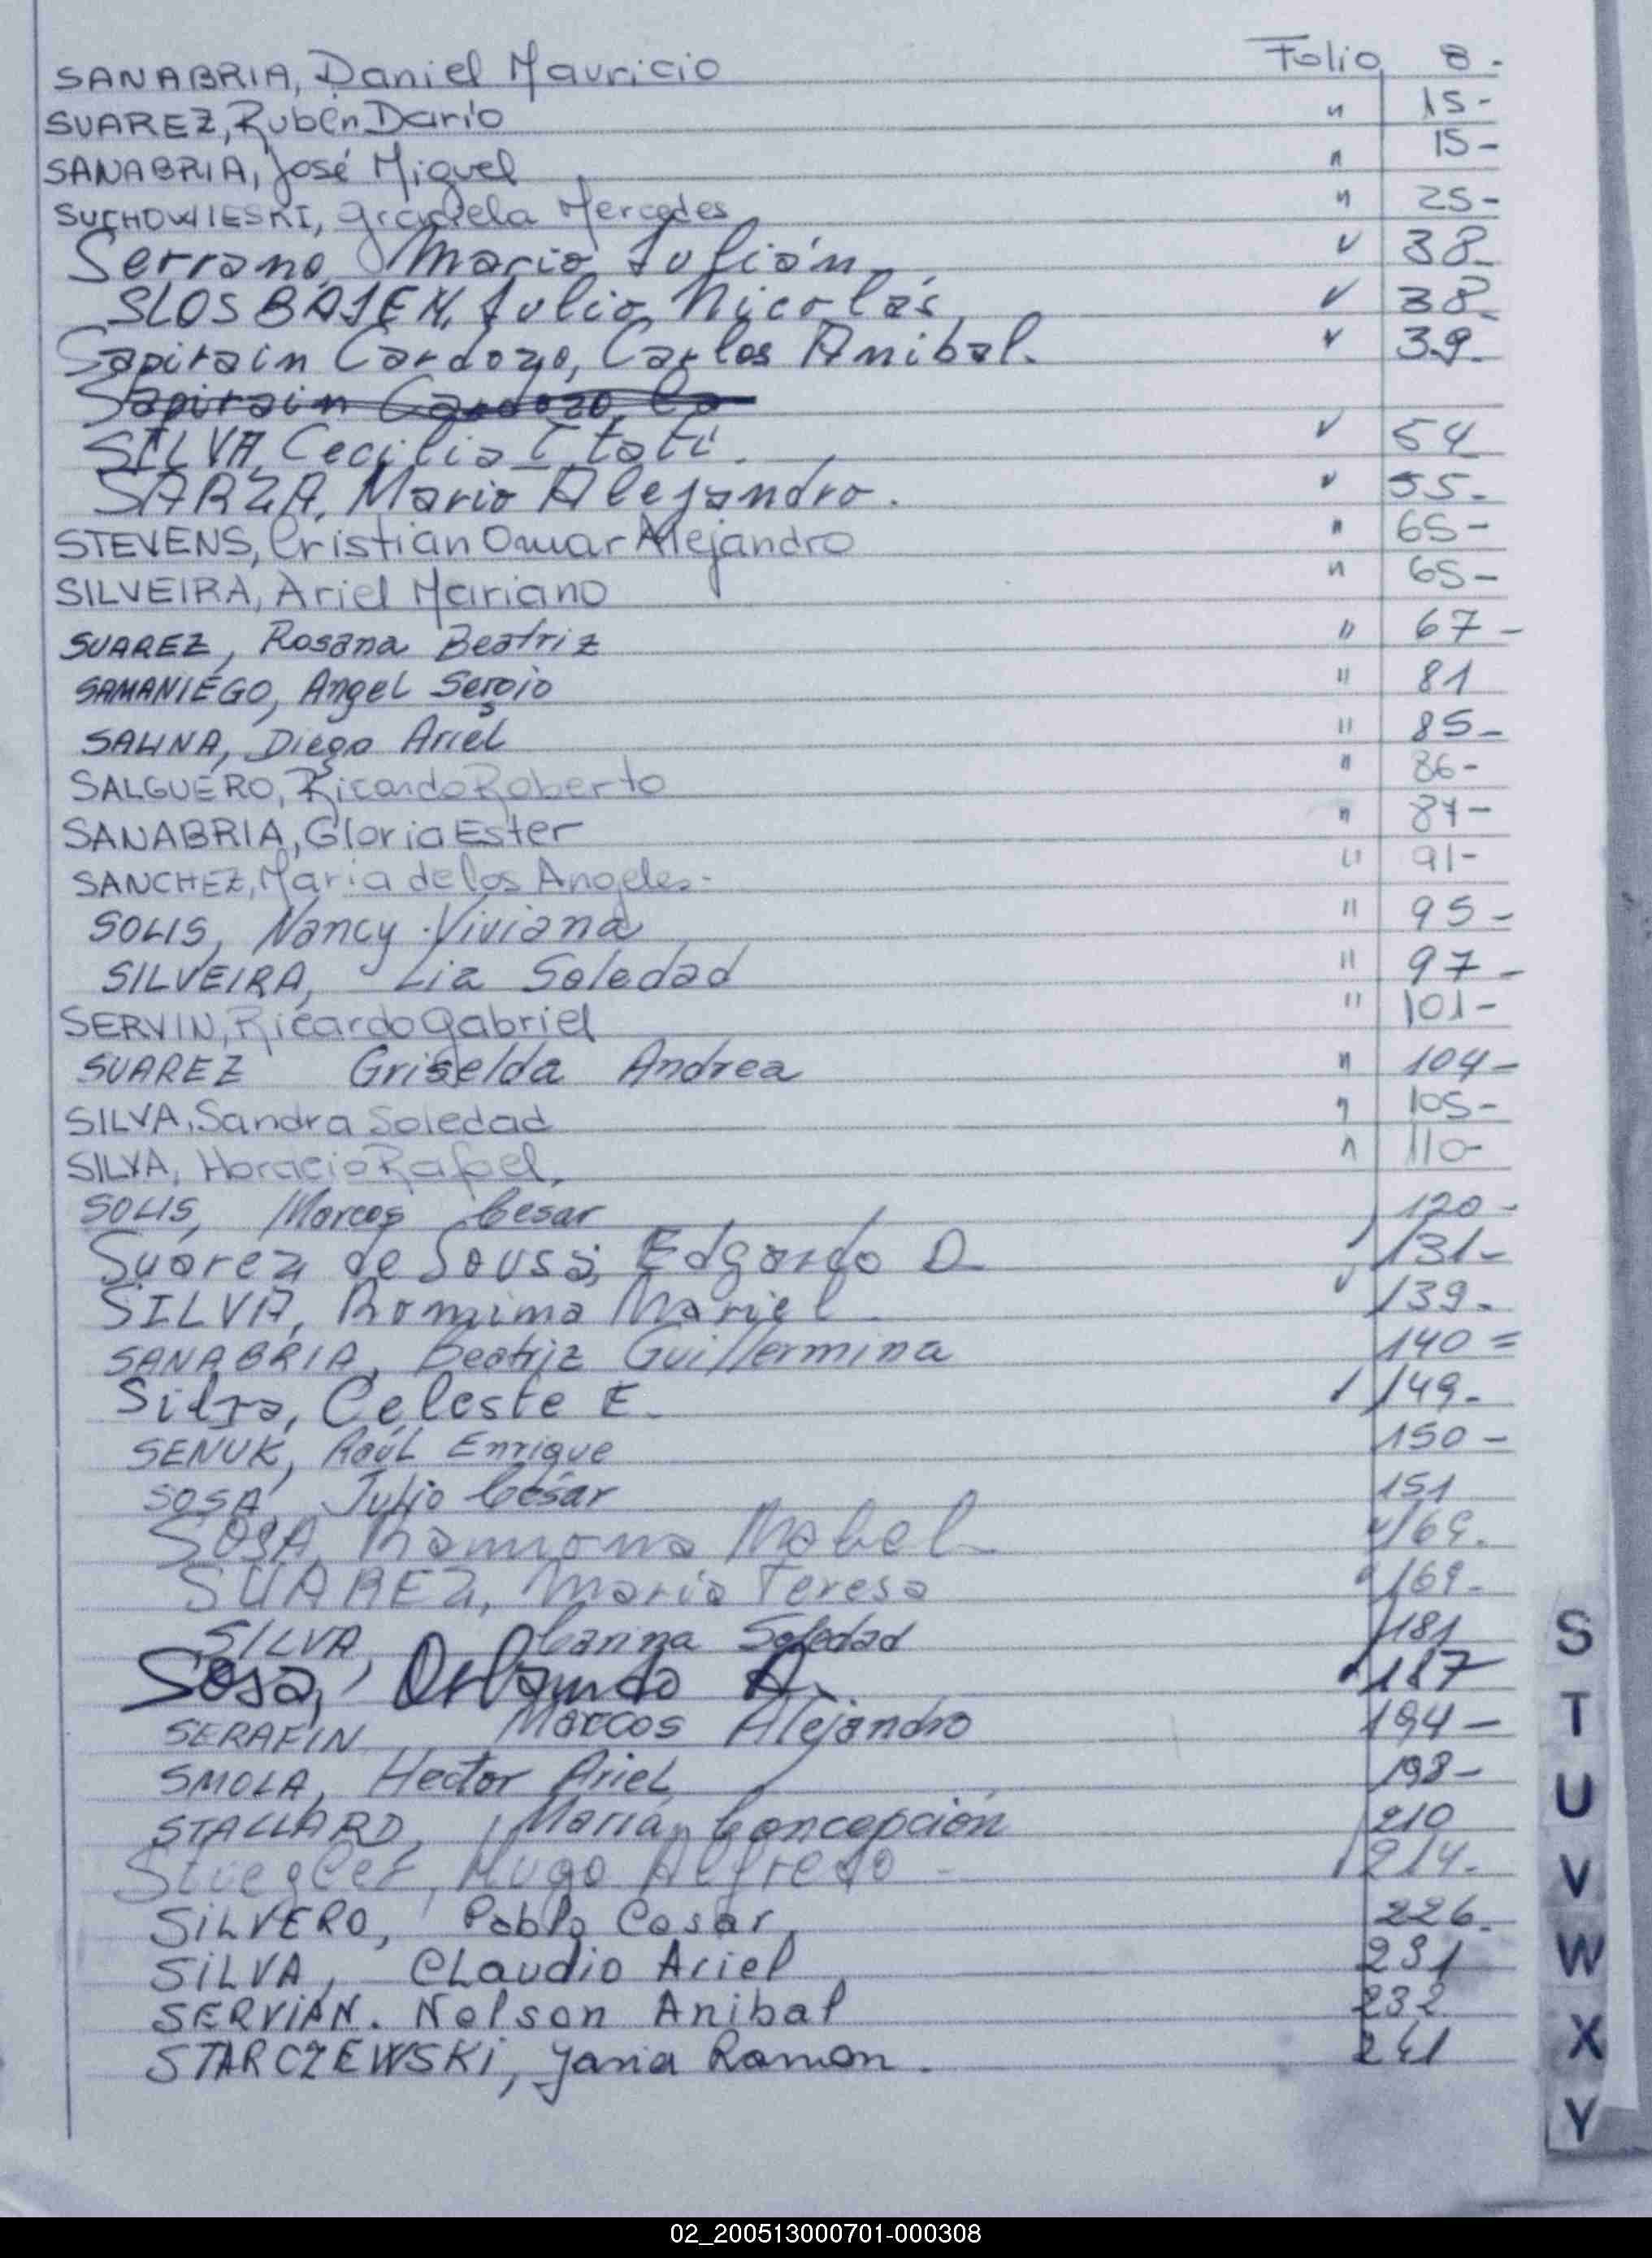 SANABRIA, Daniel Mauricio Folio 8.-
SUAREZ, Rubén Darío " 15-
SANABRIA, José Miguel " 15-
SUCHOWIESKI, Graciela Mercedes " 25-
Serrano, Mario Julián ✓ 38-
SLOSBAJEN, Julio Nicolás ✓ 38-
Sapirain Cardozo, Carlos Anibal. ✓ 39-
Sapirain Cardozo, Ca
SILVA, Cecilia Itatí. ✓ 54
SARZA, Mario Alejandro. " 55-
STEVENS, Cristian Omar Alejandro " 65-
SILVEIRA, Ariel Mariano " 65-
SUAREZ, Rosana Beatriz " 67-
SAMANIEGO, Angel Sergio " 81
SALINA, Diego Ariel " 85-
SALGUERO, Ricardo Roberto " 86-
SANABRIA, Gloria Ester " 87-
SANCHEZ, María de los Angeles.- " 91-
SOLIS, Nancy Viviana " 95-
SILVEIRA, Lia Soledad " 97-
SERVIN, Ricardo Gabriel " 101-
SUAREZ Griselda Andrea " 104-
SILVA, Sandra Soledad " 105-
SILVA, Horacio Rafael, " 110-
SOLIS, Marcos Cesar 120-
Suárez de Sousa, Edgardo D. 131-
SILVA, Romina Mariel ✓ 139.
SANABRIA, Beatriz Guillermina 140=
Silva, Celeste E. 149-
SENUK, Raúl Enrique 150-
SOSA, Julio César 151
SOSA, Ramona Mabel 169.
SUAREZ, María Teresa 169-
SILVA, Carina Soledad 181
Sosa, Orlando A. 187
SERAFIN Marcos Alejandro 194-
SMOLA, Hector Ariel 198-
STALLARD, María Concepción 210
Hugo Alfredo - 214-
SILVERO, Pablo Cesar, 226.
SILVA, Claudio Ariel 231
SERVIÁN. Nelson Anibal 232
STARCZEWSKI, Ramon. 241
S
T
U
V
W
X
Y
02_200513000701-000308